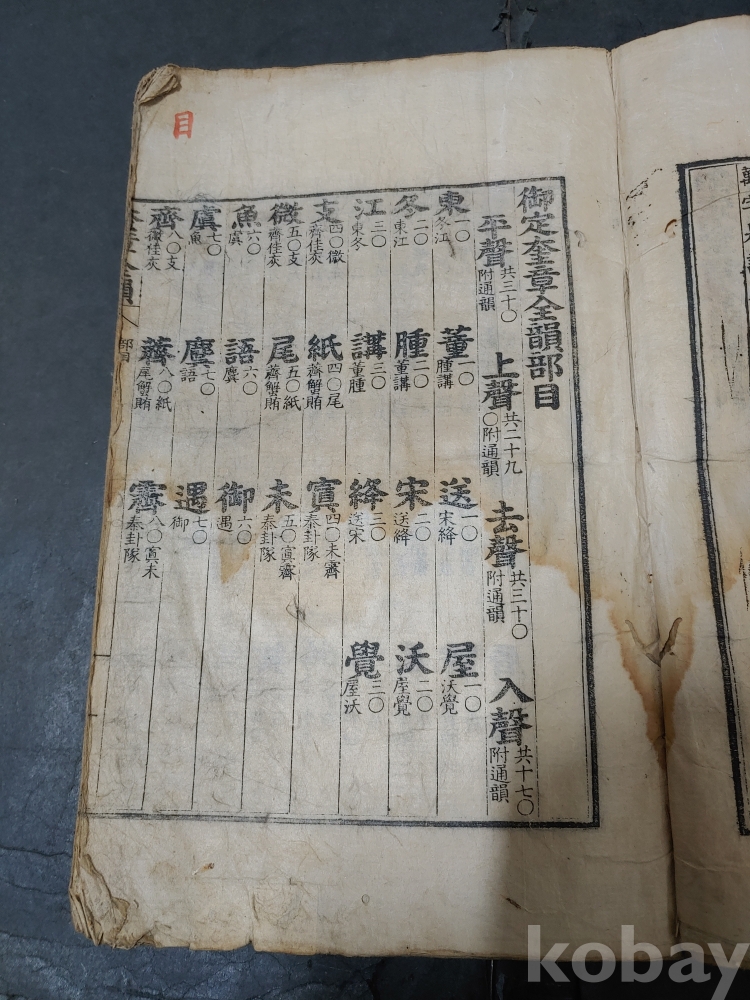 目
御定奎章全韻部目
平聲共三十〇附通韻 上聲共二十九〇附通韻 去聲共三十〇附通韻 入聲共十七〇附通韻
東一〇冬江 董一〇腫講 送一〇宋絳 屋一〇沃覺
冬二〇東江 腫二〇董講 宋二〇送絳 沃二〇屋覺
江三〇東冬 講三〇董腫 絳三〇送宋 覺三〇屋沃
支四〇微齊佳灰 紙四〇尾薺蟹賄 寘四〇未霽泰卦隊
微五〇支齊佳灰 尾五〇紙薺蟹賄 未五〇寘霽泰卦隊
魚六〇虞 語六〇麌 御六〇遇
虞七〇魚 麌七〇語 遇七〇御
齊八〇支微佳灰 薺八〇紙尾蟹賄 霽八〇寘未泰卦隊
全韻 部目
kobay